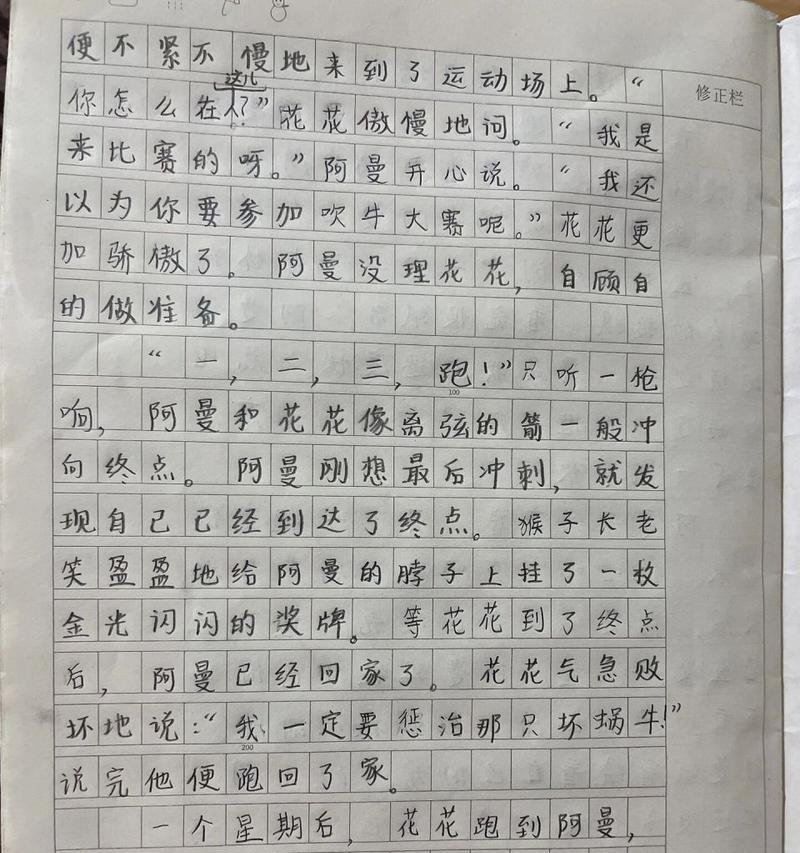 便不紧不慢地来到了运动场上。“
修正栏
你怎么在这儿？”花花傲慢地问。“我是
来比赛的呀。”阿曼开心说。“我还
以为你要参加吹牛大赛呢。”花花更
加骄傲了。阿曼没理花花，自顾自
的做准备。
“一，二，三，跑！”只听一枪
100
响，阿曼和花花像离弦的箭一般冲
向终点。阿曼刚想最后冲刺，就发
现自己已经到达了终点。猴子长老
笑盈盈地给阿曼的脖子上挂了一枚
金光闪闪的奖牌。等花花到了终点
后，阿曼已经回家了。花花气急败
坏地说：“我一定要惩治那只坏蜗牛！”
200
说完他便跑回了家。
一个星期后，花花跑到阿曼，